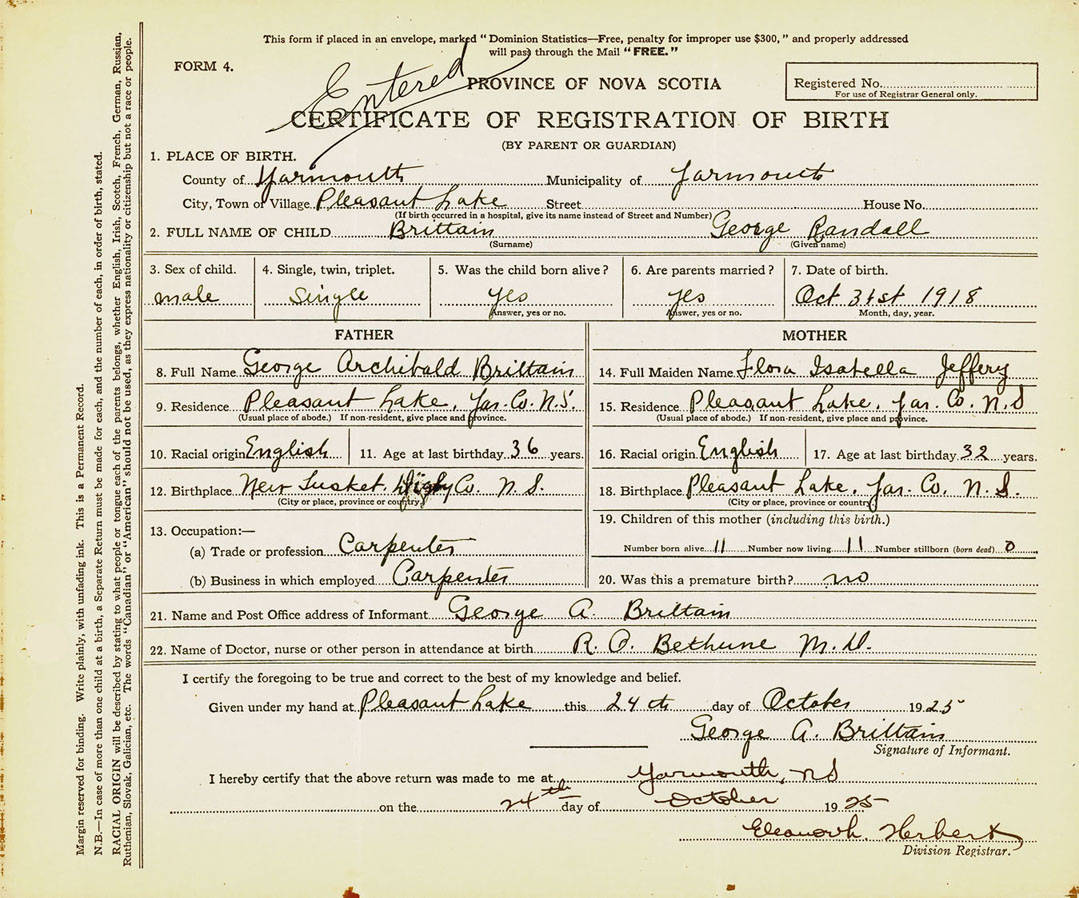 This form if placed in an envelope, marked "Dominion Statistics—Free, penalty for improper use $300," and properly addressed
will pass through the Mail "FREE."
FORM 4.
Entered
PROVINCE OF NOVA SCOTIA
Registered No.
For use of Registrar General only.
CERTIFICATE OF REGISTRATION OF BIRTH
(BY PARENT OR GUARDIAN)
1. PLACE OF BIRTH.
County of Yarmouth Municipality of Yarmouth
City, Town or Village Pleasant Lake Street House No.
(If birth occurred in a hospital, give its name instead of Street and Number)
2. FULL NAME OF CHILD Brittain George Randall
(Surname) (Given name)
3. Sex of child. 4. Single, twin, triplet. 5. Was the child born alive? 6. Are parents married? 7. Date of birth.
male Single yes yes Oct 31st 1918
Answer, yes or no. Answer, yes or no. Month, day, year.
FATHER MOTHER
8. Full Name George Archibald Brittain 14. Full Maiden Name Flora Isabella Jeffery
9. Residence Pleasant Lake, Yar. Co. N.S. 15. Residence Pleasant Lake, Yar. Co. N.S
(Usual place of abode.) If non-resident, give place and province. (Usual place of abode.) If non-resident, give place and province.
10. Racial origin English 11. Age at last birthday 36 years. 16. Racial origin English 17. Age at last birthday 32 years.
12. Birthplace New Tusket, Digby Co. N.S. 18. Birthplace Pleasant Lake, Yar. Co. N.S.
(City or place, province or country) (City or place, province or country)
13. Occupation:— 19. Children of this mother (including this birth.)
(a) Trade or profession Carpenter Number born alive 11 Number now living 11 Number stillborn (born dead) 0
(b) Business in which employed Carpenter 20. Was this a premature birth? no
21. Name and Post Office address of Informant George A. Brittain
22. Name of Doctor, nurse or other person in attendance at birth R. O. Bethune M.D.
I certify the foregoing to be true and correct to the best of my knowledge and belief.
Given under my hand at Pleasant Lake this 24th day of October 1925
George A. Brittain
Signature of Informant.
I hereby certify that the above return was made to me at Yarmouth, NS
on the 24th day of October 1925
Herbert
Division Registrar.
Margin reserved for binding. Write plainly, with unfading ink. This is a Permanent Record.
N.B.—In case of more than one child at a birth, a Separate Return must be made for each, and the number of each, in order of birth, stated.
RACIAL ORIGIN will be described by stating to what people or tongue each of the parents belongs, whether English, Irish, Scotch, French, German, Russian,
Ruthenian, Slovak, Galician, etc. The words "Canadian" or "American" should not be used, as they express nationality or citizenship but not a race or people.